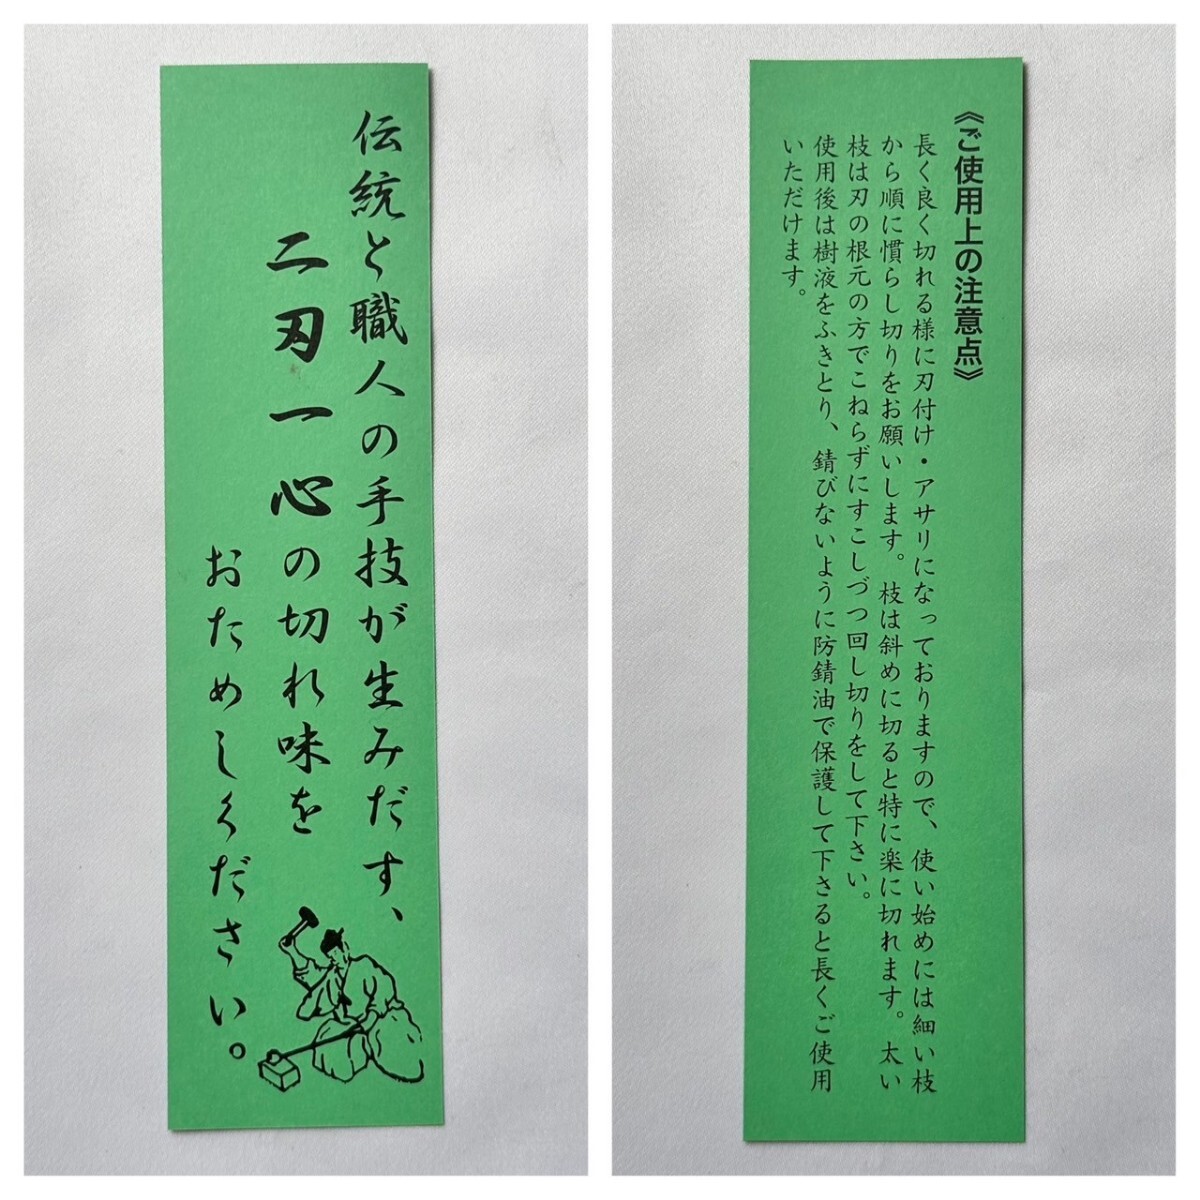 伝統と職人の手技が生みだす、
二刃一心の切れ味を
おためしください。
《ご使用上の注意点》
長く良く切れる様に刃付け・アサリになっておりますので、使い始めには細い枝
から順に慣らし切りをお願いします。枝は斜めに切ると特に楽に切れます。太い
枝は刃の根元の方でこねらずにすこしづつ回し切りをして下さい。
使用後は樹液をふきとり、錆びないように防錆油で保護して下さると長くご使用
いただけます。